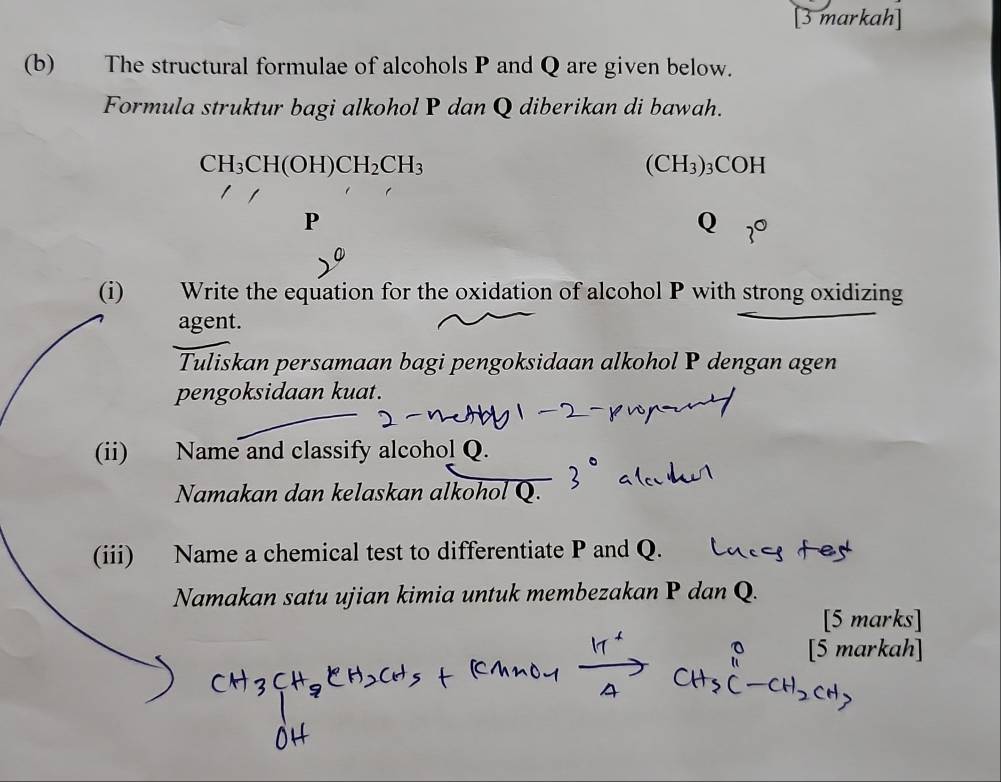 [3 markah]
(b) The structural formulae of alcohols P and Q are given below.
Formula struktur bagi alkohol P dan Q diberikan di bawah.
CH₃CH(OH)CH₂CH₃ (CH₃)₃COH
P Q 3°
2°
(i) Write the equation for the oxidation of alcohol P with strong oxidizing
agent.
Tuliskan persamaan bagi pengoksidaan alkohol P dengan agen
pengoksidaan kuat.
2-methyl-2-
(ii) Name and classify alcohol Q.
Namakan dan kelaskan alkohol Q. 3°
(iii) Name a chemical test to differentiate P and Q. Lucas test
Namakan satu ujian kimia untuk membezakan P dan Q.
[5 marks]
[5 markah]
O
H⁺
CH₃CH₂CH₂CH₃ + KMnO₄ → CH₃C-CH₂CH₃
Δ
OH